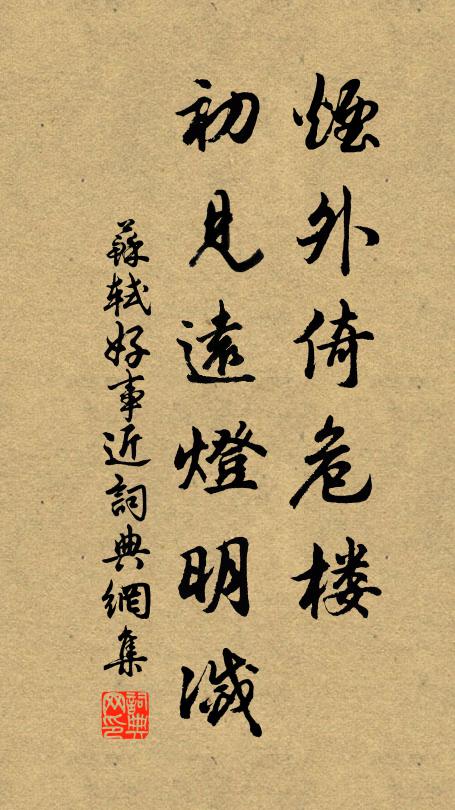 煙外倚危楼
初見遠燈明滅
蘇軾好事近詞典網集
詞典網印